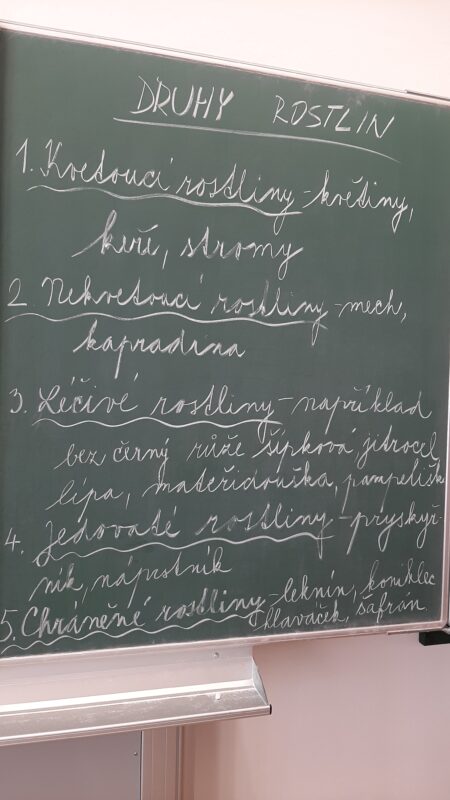 DRUHY ROSTLIN
1. Kvetoucí rostliny - květiny,
keře, stromy
2. Nekvetoucí rostliny - mech,
kapradina
3. Léčivé rostliny - například
bez černý růže šípková jitrocel
lípa, mateřídouška, pampelišk
4. Jedovaté rostliny - pryskyř-
ník, náprstník
5. Chráněné rostliny - leknín, koniklec
hlaváček, šafrán